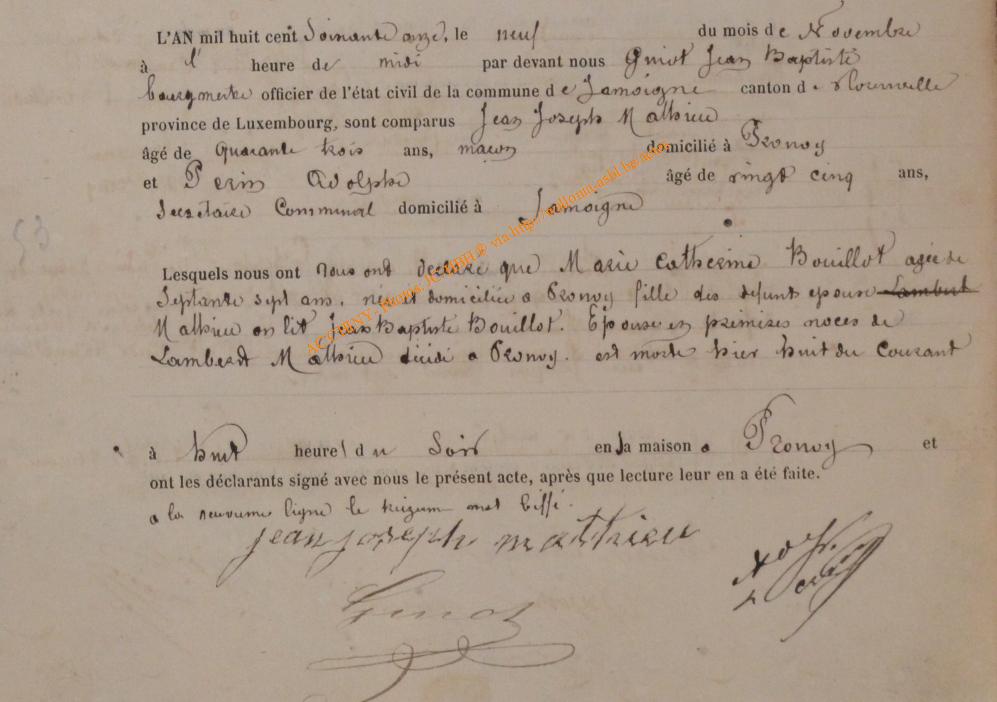 L'AN mil huit cent Soixante onze, le neuf du mois de Novembre
à l' heure de midi par devant nous Ginot Jean Baptiste
bourgmestre officier de l'état civil de la commune de Jamoigne canton de Florenville
province de Luxembourg, sont comparus Jean Joseph Mathieu
âgé de Quarante trois ans, maçon domicilié à Pronvoy
et Perin Adolphe âgé de vingt cinq ans,
Secrétaire Communal domicilié à Jamoigne
Lesquels nous ont nous ont declaré que Marie Catherine Bouillot agée de
Septante sept ans, née et domiciliée a Pronvoy fille des defunt epoux Lambert
Mathieu on lit Jean Baptiste Bouillot. Epouse en premises noces de
Lambert Mathieu décédé a Pronvoy. est morte hier huit du Courant
à huit heure du Soir en la maison a Pronvoy et
ont les déclarants signé avec nous le présent acte, après que lecture leur en a été faite.
a la neuvieme ligne le mot biffé.
jean joseph mathieu
Ginot
ACCRENY - via http: